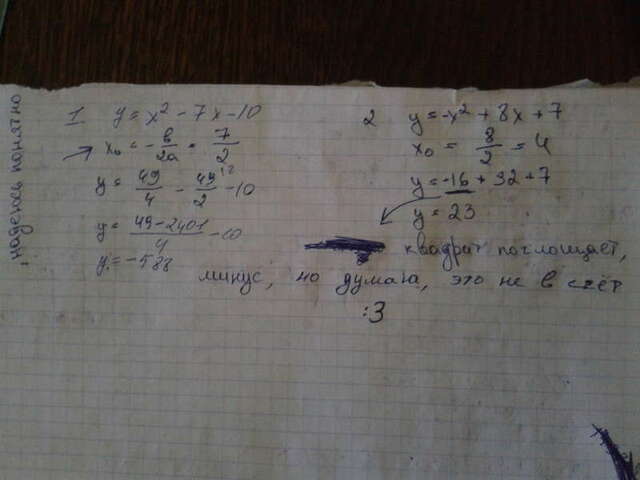 , надеюсь понятно
1 y = x² - 7x - 10
x₀ = - в/2a = 7/2
y = 49/4 - 49/2 ¹² - 10
y = (49 - 2401)/4 - 10
y = -588
2 y = -x² + 8x + 7
x₀ = 8/2 = 4
y = -16 + 32 + 7
y = 23
квадрат поглощает,
минус, но думаю, это не в счёт
:3